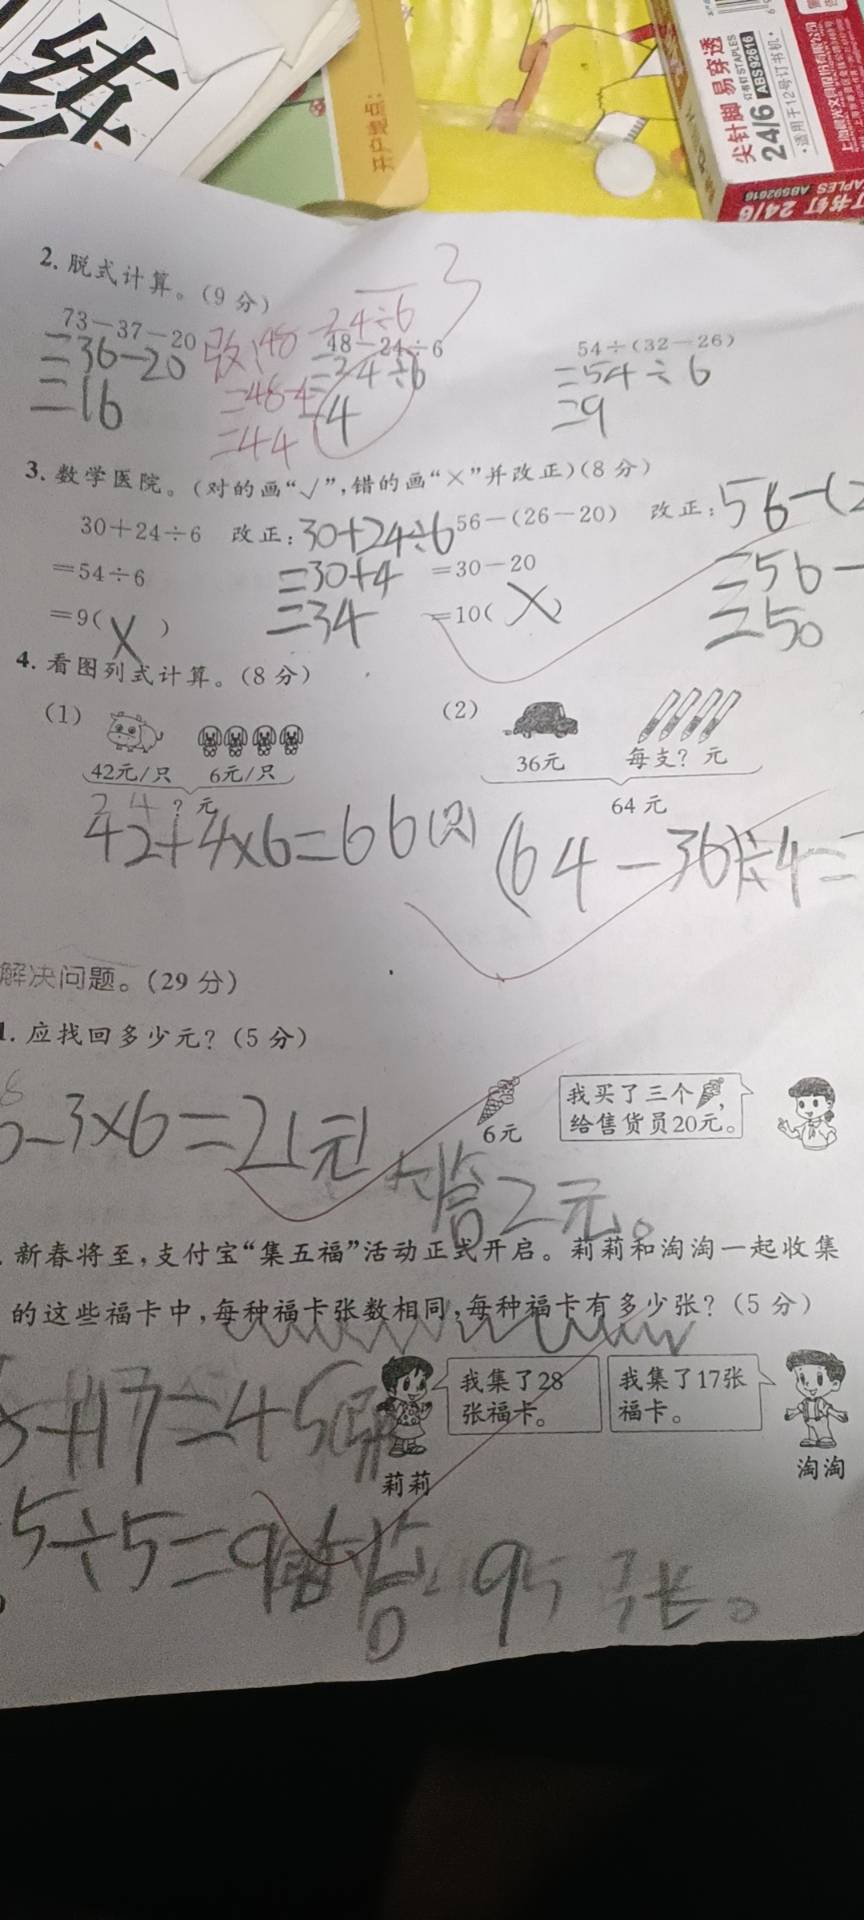 练
开户地点：
尖针脚 易穿透
24/6 订书钉STAPLES ABS92616
·适用于12号订书机·
订书钉 24/6 STAPLES ABS92616
2. 脱式计算。（9分）
3
73－37－20 48－24÷6 54÷（32－26）
=36-20
=16
改：48-24÷6
=48-4
=44
=24÷6
=4
=54÷6
=9
3. 数学医院。（对的画“√”，错的画“×”并改正）（8分）
30＋24÷6 改正：30+24÷6 56－（26－20） 改正：56-(2
＝54÷6 =30+4 ＝30－20 =56-
＝9（×） =34 ＝10（×） =50
4. 看图列式计算。（8分）
（1） （2）
42元/只 6元/只 36元 每支？元
24 ？元 64元
42+4×6=66(只) (64-36)÷4=
解决问题。（29分）
1. 应找回多少元？（5分）
我买了三个，
给售货员20元。
6元
-3×6=2(元)
答2元。
新春将至，支付宝“集五福”活动正式开启。莉莉和淘淘一起收集
的这些福卡中，每种福卡张数相同，每种福卡有多少张？（5分）
我集了28张福卡。
我集了17张福卡。
莉莉 淘淘
+17=45
5÷5=9
答
张。